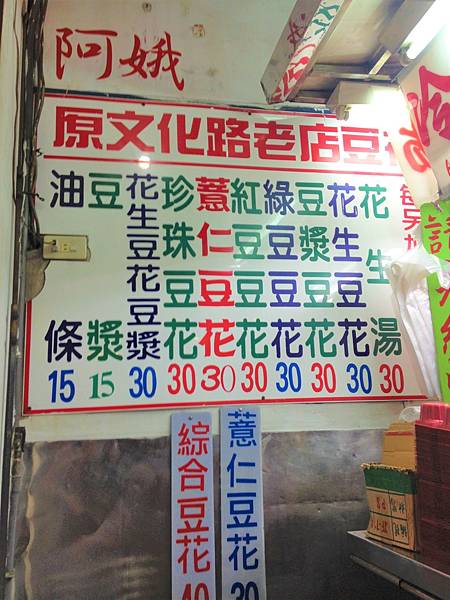 阿娥
原文化路老店豆花
花生湯 30
花生豆花 30
豆漿豆花 30
綠豆豆花 30
紅豆豆花 30
薏仁豆花 30
珍珠豆花 30
花生豆花豆漿 30
豆漿 15
油條 15
薏仁豆花 30
綜合豆花 40